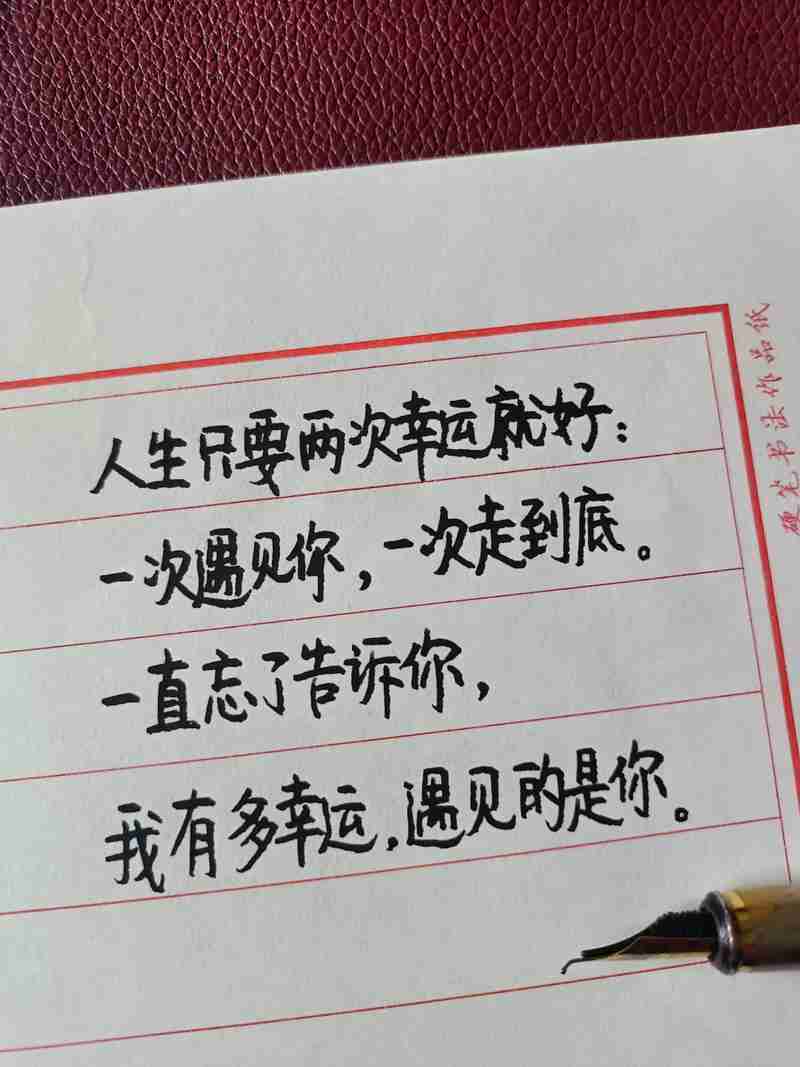 人生只要两次幸运就好：
一次遇见你，一次走到底。
一直忘了告诉你，
我有多幸运，遇见的是你。
硬笔书法作品纸